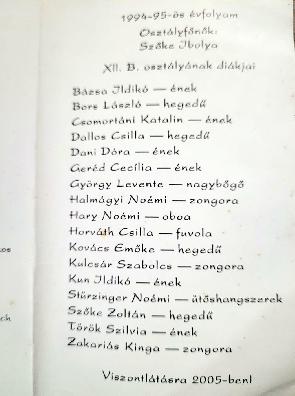 1994-95-ös évfolyam
Osztályfőnök:
Szőke Ibolya
XII. B. osztályának diákjai
Bázsa Ildikó — ének
Bors László — hegedű
Csomortáni Katalin — ének
Dallos Csilla — hegedű
Dani Dóra — ének
Geréd Cecília — ének
György Levente — nagybőgő
Halmágyi Noémi — zongora
Hary Noémi — oboa
Horváth Csilla — fuvola
Kovács Emőke — hegedű
Kulcsár Szabolcs — zongora
Kun Ildikó — ének
Stürzinger Noémi — ütőshangszerek
Szőke Zoltán — hegedű
Török Szilvia — ének
Zakariás Kinga — zongora
Viszontlátásra 2005-ben!